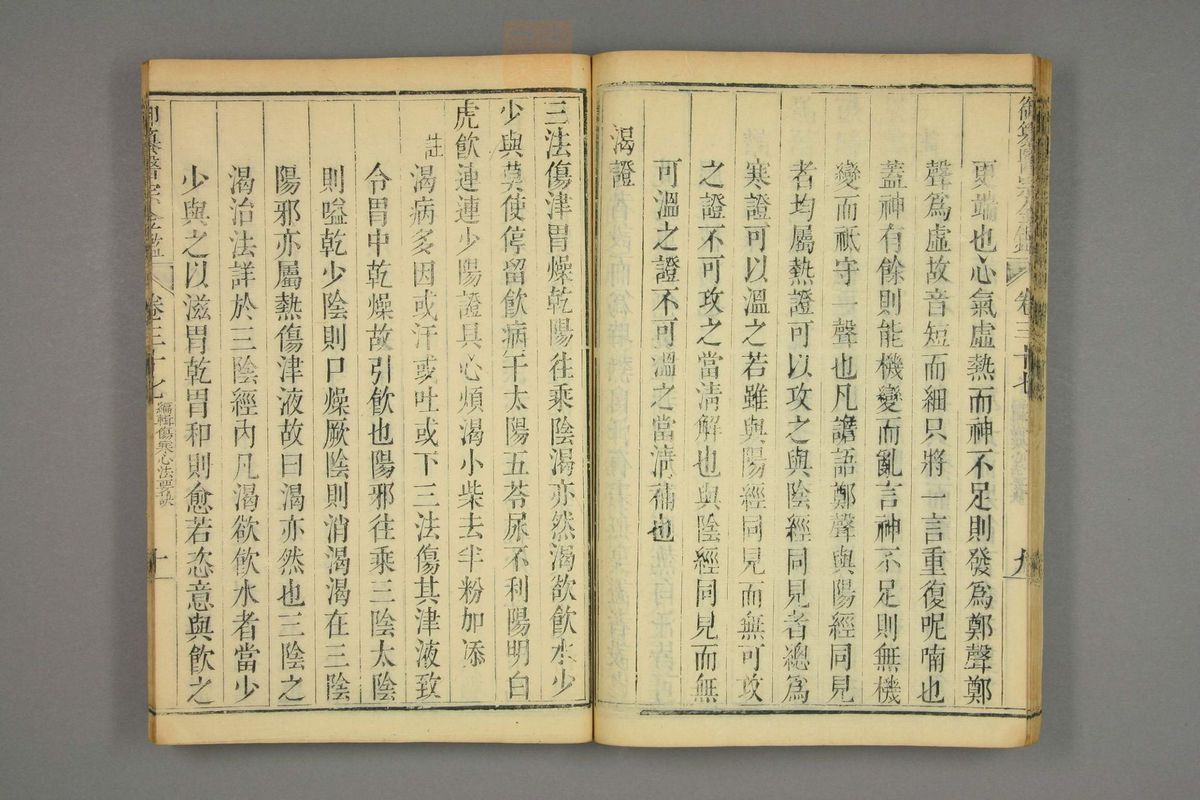 更端也心氣虛熱而神不足則發爲鄭聲鄭
聲爲虛故音短而細只將一言重復呢喃也
蓋神有餘則能機變而亂言神不足則無機
變而祇守一聲也凡譫語鄭聲與陽經同見
者均屬熱證可以攻之與陰經同見者總爲
寒證可以溫之若雖與陽經同見而無可攻
之證不可攻之當淸解也與陰經同見而無
可溫之證不可溫之當淸補也
渴證
三法傷津胃燥乾陽往乘陰渴亦然渴欲飮水少
少與莫使停留飮病干太陽五苓尿不利陽明白
虎飮連連少陽證具心煩渴小柴去半粉加添
註 渴病多因或汗或吐或下三法傷其津液致
令胃中乾燥故引飮也陽邪往乘三陰太陰
則嗌乾少陰則口燥厥陰則消渴渴在三陰
陽邪亦屬熱傷津液故曰渴亦然也三陰之
渴治法詳於三陰經內凡渴欲飮水者當少
少與之以滋胃乾胃和則愈若恣意與飮之
御纂醫宗金鑑 卷三十七 編輯傷寒心法要訣 十
御纂醫宗金鑑 卷三十七 九